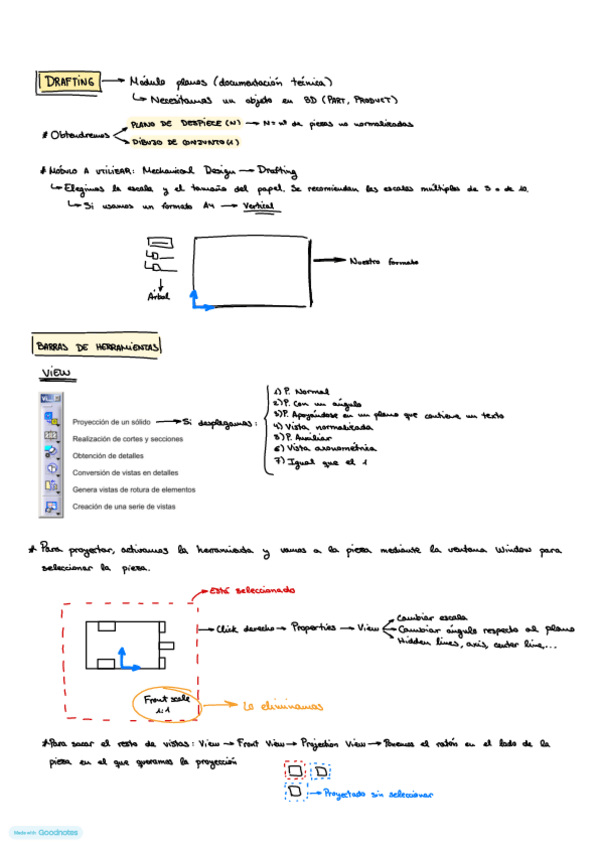 DRAFTING → Módulo planos (documentación técnica)
↳ Necesitamos un objeto en 3D (PART, PRODUCT)
* Obtendremos
PLANO DE DESPIECE (N) → N = nº de piezas no normalizadas
DIBUJO DE CONJUNTO (1)
* MÓDULO A UTILIZAR: Mechanical Design → Drafting
↳ Elegimos la escala y el tamaño del papel. Se recomiendan las escalas múltiplos de 5 o de 10.
↳ Si usamos un formato A4 → Vertical
→ Nuestro formato
Árbol
BARRAS DE HERRAMIENTAS
VIEW
Proyección de un sólido → Si desplegamos:
1) P. Normal
2) P. Con un ángulo
3) P. Apoyándose en un plano que contiene un texto
4) Vista normalizada
5) P. Auxiliar
6) Vista axonométrica
7) Igual que el 1
Realización de cortes y secciones
Obtención de detalles
Conversión de vistas en detalles
Genera vistas de rotura de elementos
Creación de una serie de vistas
* Para proyectar, activamos la herramienta y vamos a la pieza mediante la ventana Window para
seleccionar la pieza.
→ Está seleccionado
→ Click derecho → Properties → View
Cambiar escala
Cambiar ángulo respecto al plano
Hidden lines, axis, center line,...
Front scale
1:1
→ Lo eliminamos
* Para sacar el resto de vistas: View → Front View → Projection View → Ponemos el ratón en el lado de la
pieza en el que queramos la proyección
→ Proyectado sin seleccionar
Made with Goodnotes